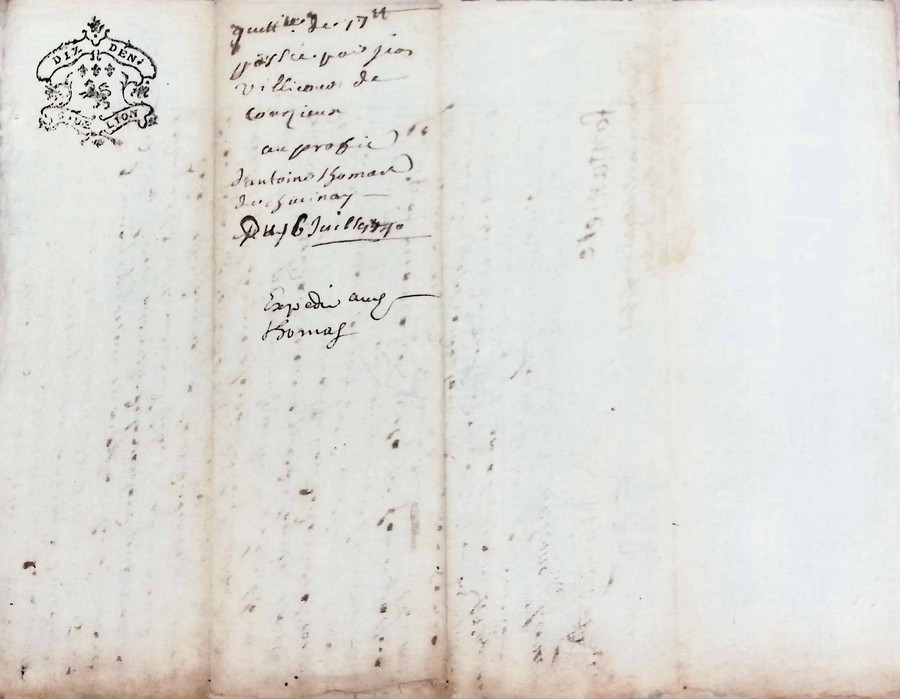 DIX DEN.
G. DE LION
quittce. de 17tt
passée par jean
Villiemos de
Courzieux
au profit
d'antoine thomas
de
Du 16 Juillet 1770
Expedié aud
thomas